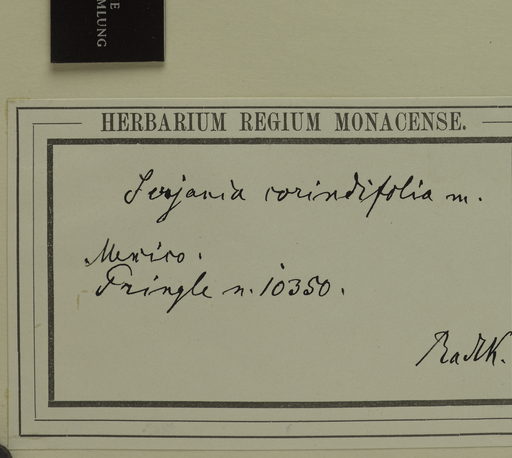 E
MLUNG
HERBARIUM REGIUM MONACENSE.
Serjania corindifolia m.
Mexico.
Pringle n. 10350.
Radlk.